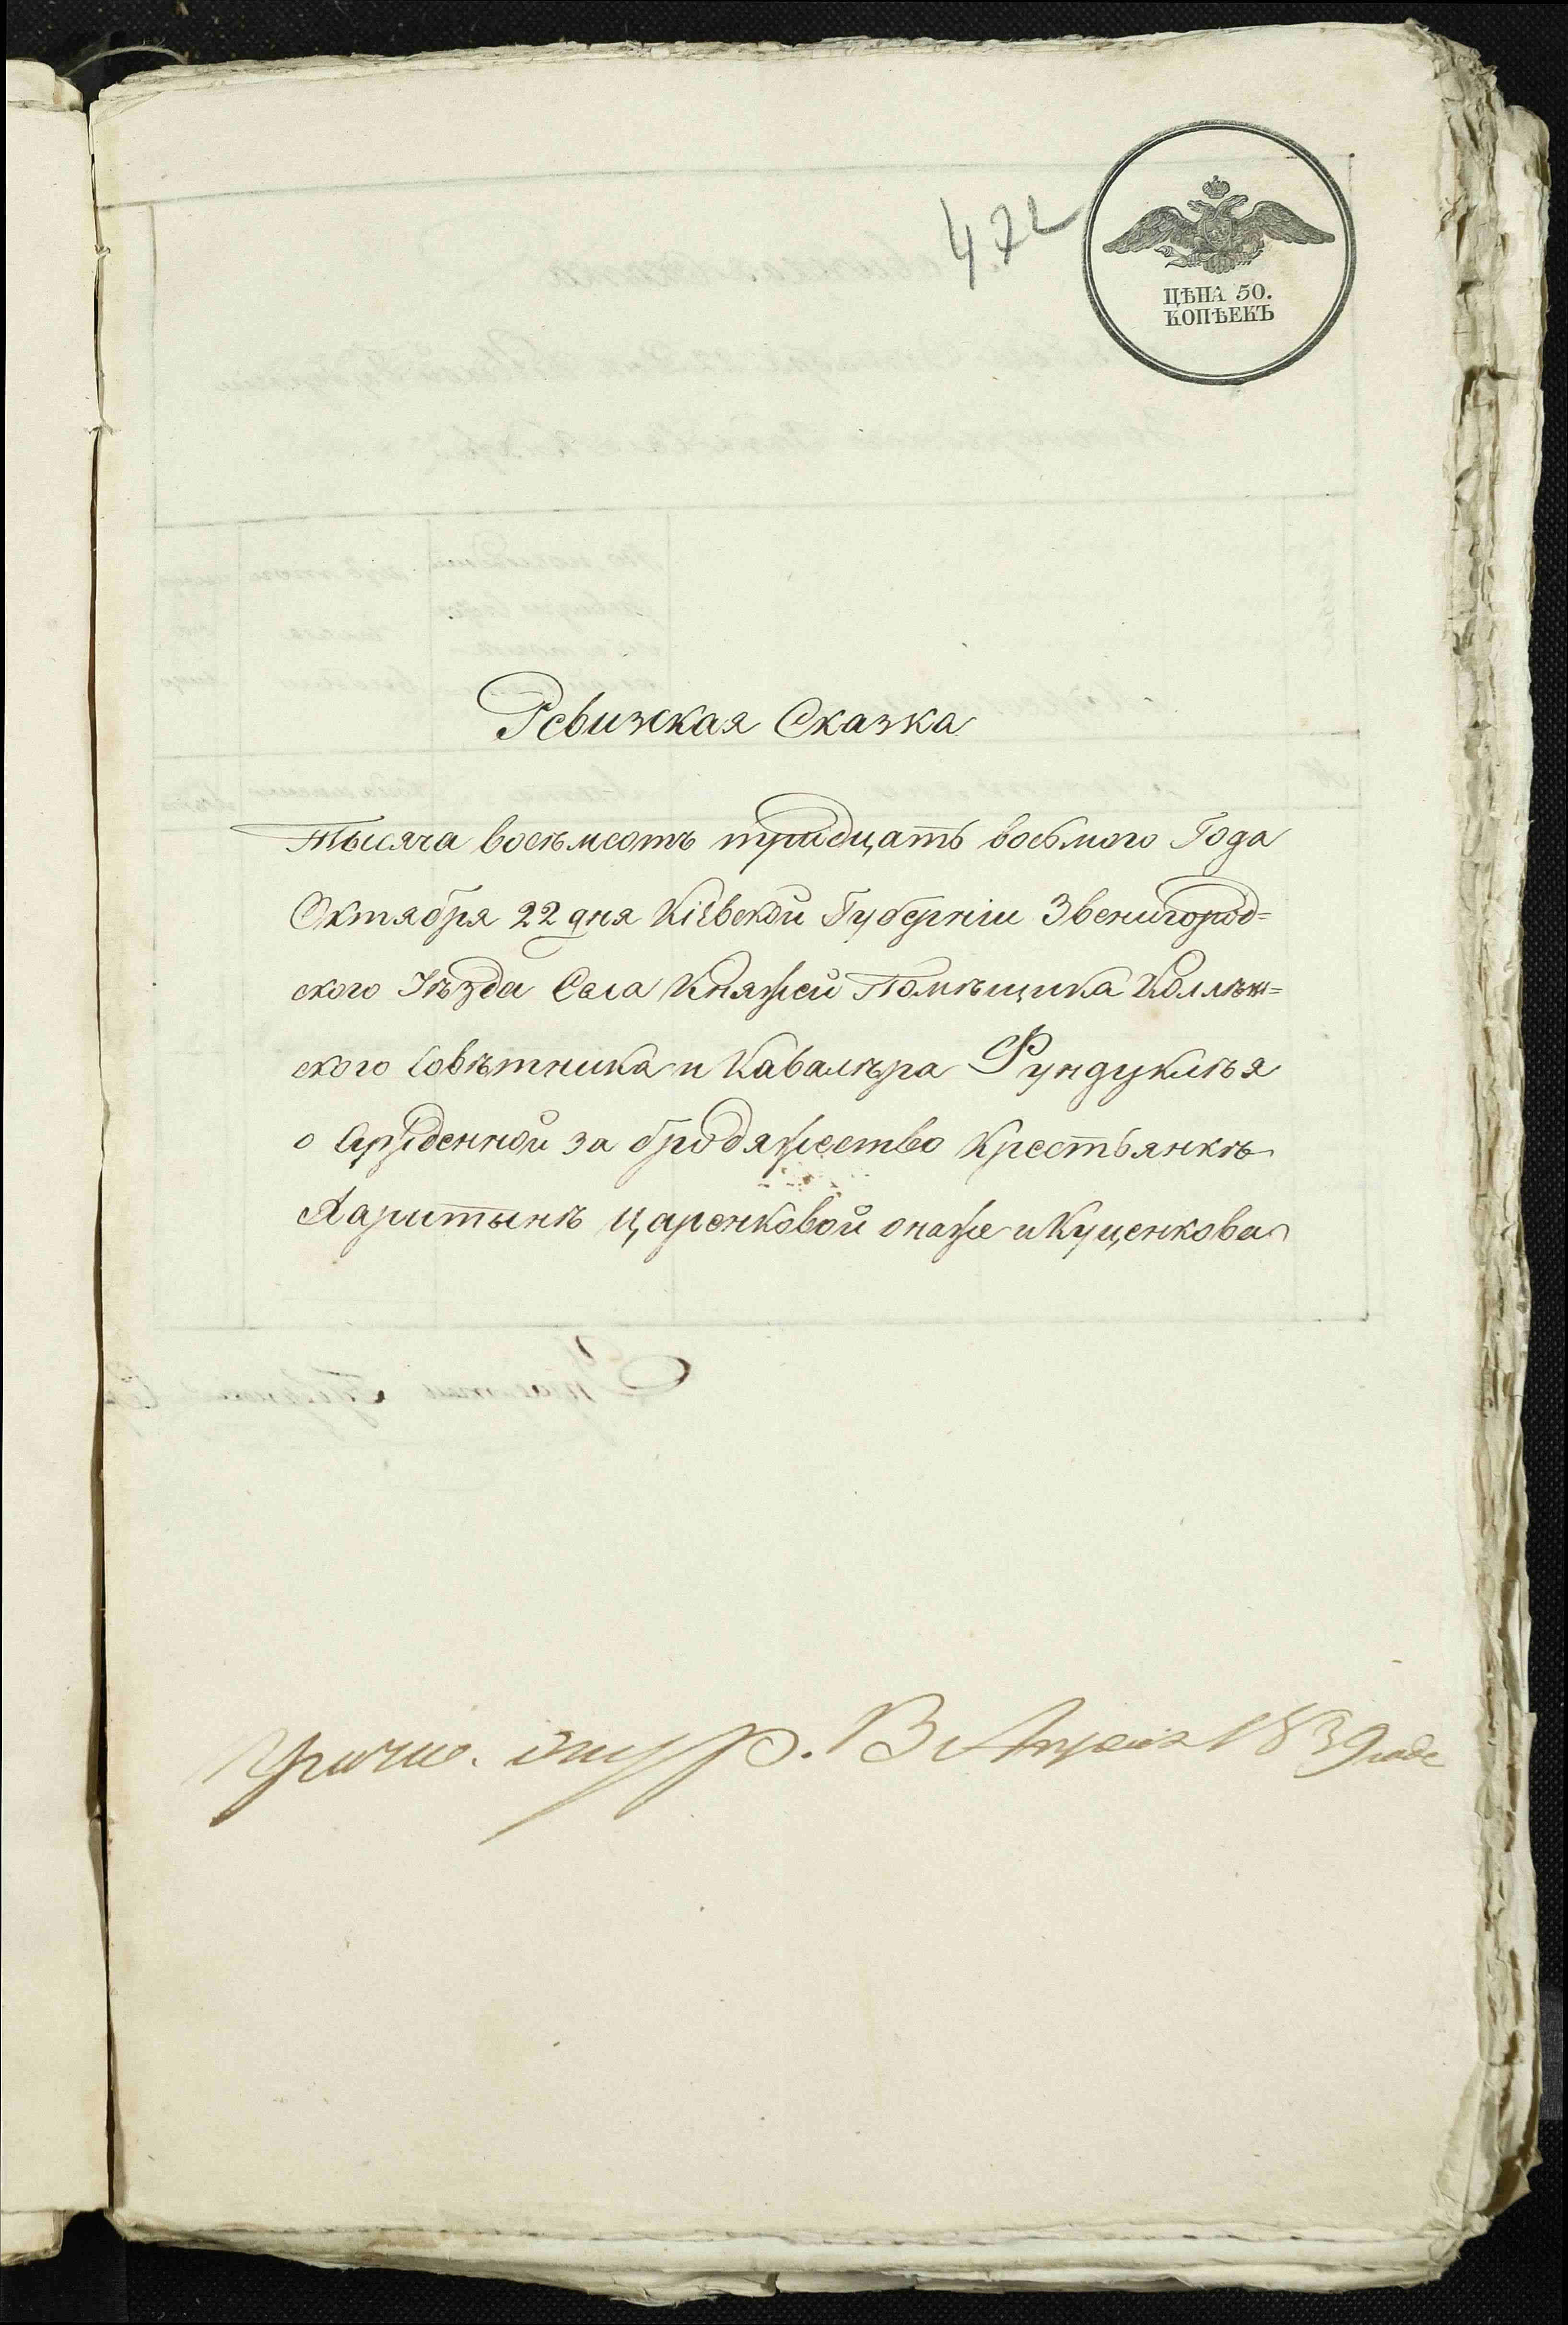 472
ЦѢНА 50.
КОПѢЕКЪ
Ревизкая Сказка
Тысяча восѣмсотъ тридцать восьмого Года
Октября 22 дня Кіевской Губерніи Звенигород=
ского Уѣзда Села Княжей Помѣщика Коллѣж=
ского Совѣтника и Кавалѣра Фундуклѣя
о Сужденной за бродяжество Крестьянкѣ
Харитынѣ Царенковой онаже и Куценкова
Апреля 1839 года